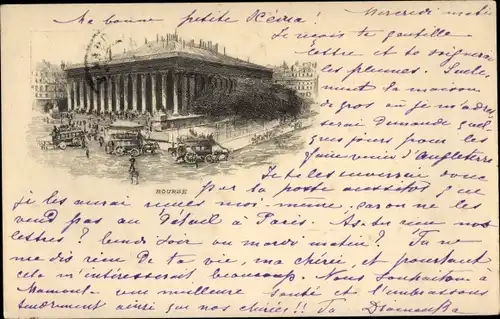 Ma bonne petite Xénia! Mercredi matin
Je reçois ta gentille
lettre et te soignerai
les plumes. Seule-
ment la maison
de gros où je m'adres-
serai demande quel-
ques jours pour les
faire venir d'Angleterre
Je te les enverrai donc
par la poste aussitôt que
BOURSE
je les aurai reçues moi-même, car on ne les
vend pas au détail à Paris. As-tu reçu nos
lettres? lundi soir ou mardi matin? Tu ne
me dis rien de ta vie, ma chérie et pourtant
cela m'intéresserait beaucoup. Nous souhaitons à
Maman une meilleure santé et l'embrassons
tendrement ainsi que nos chéries!! Ta